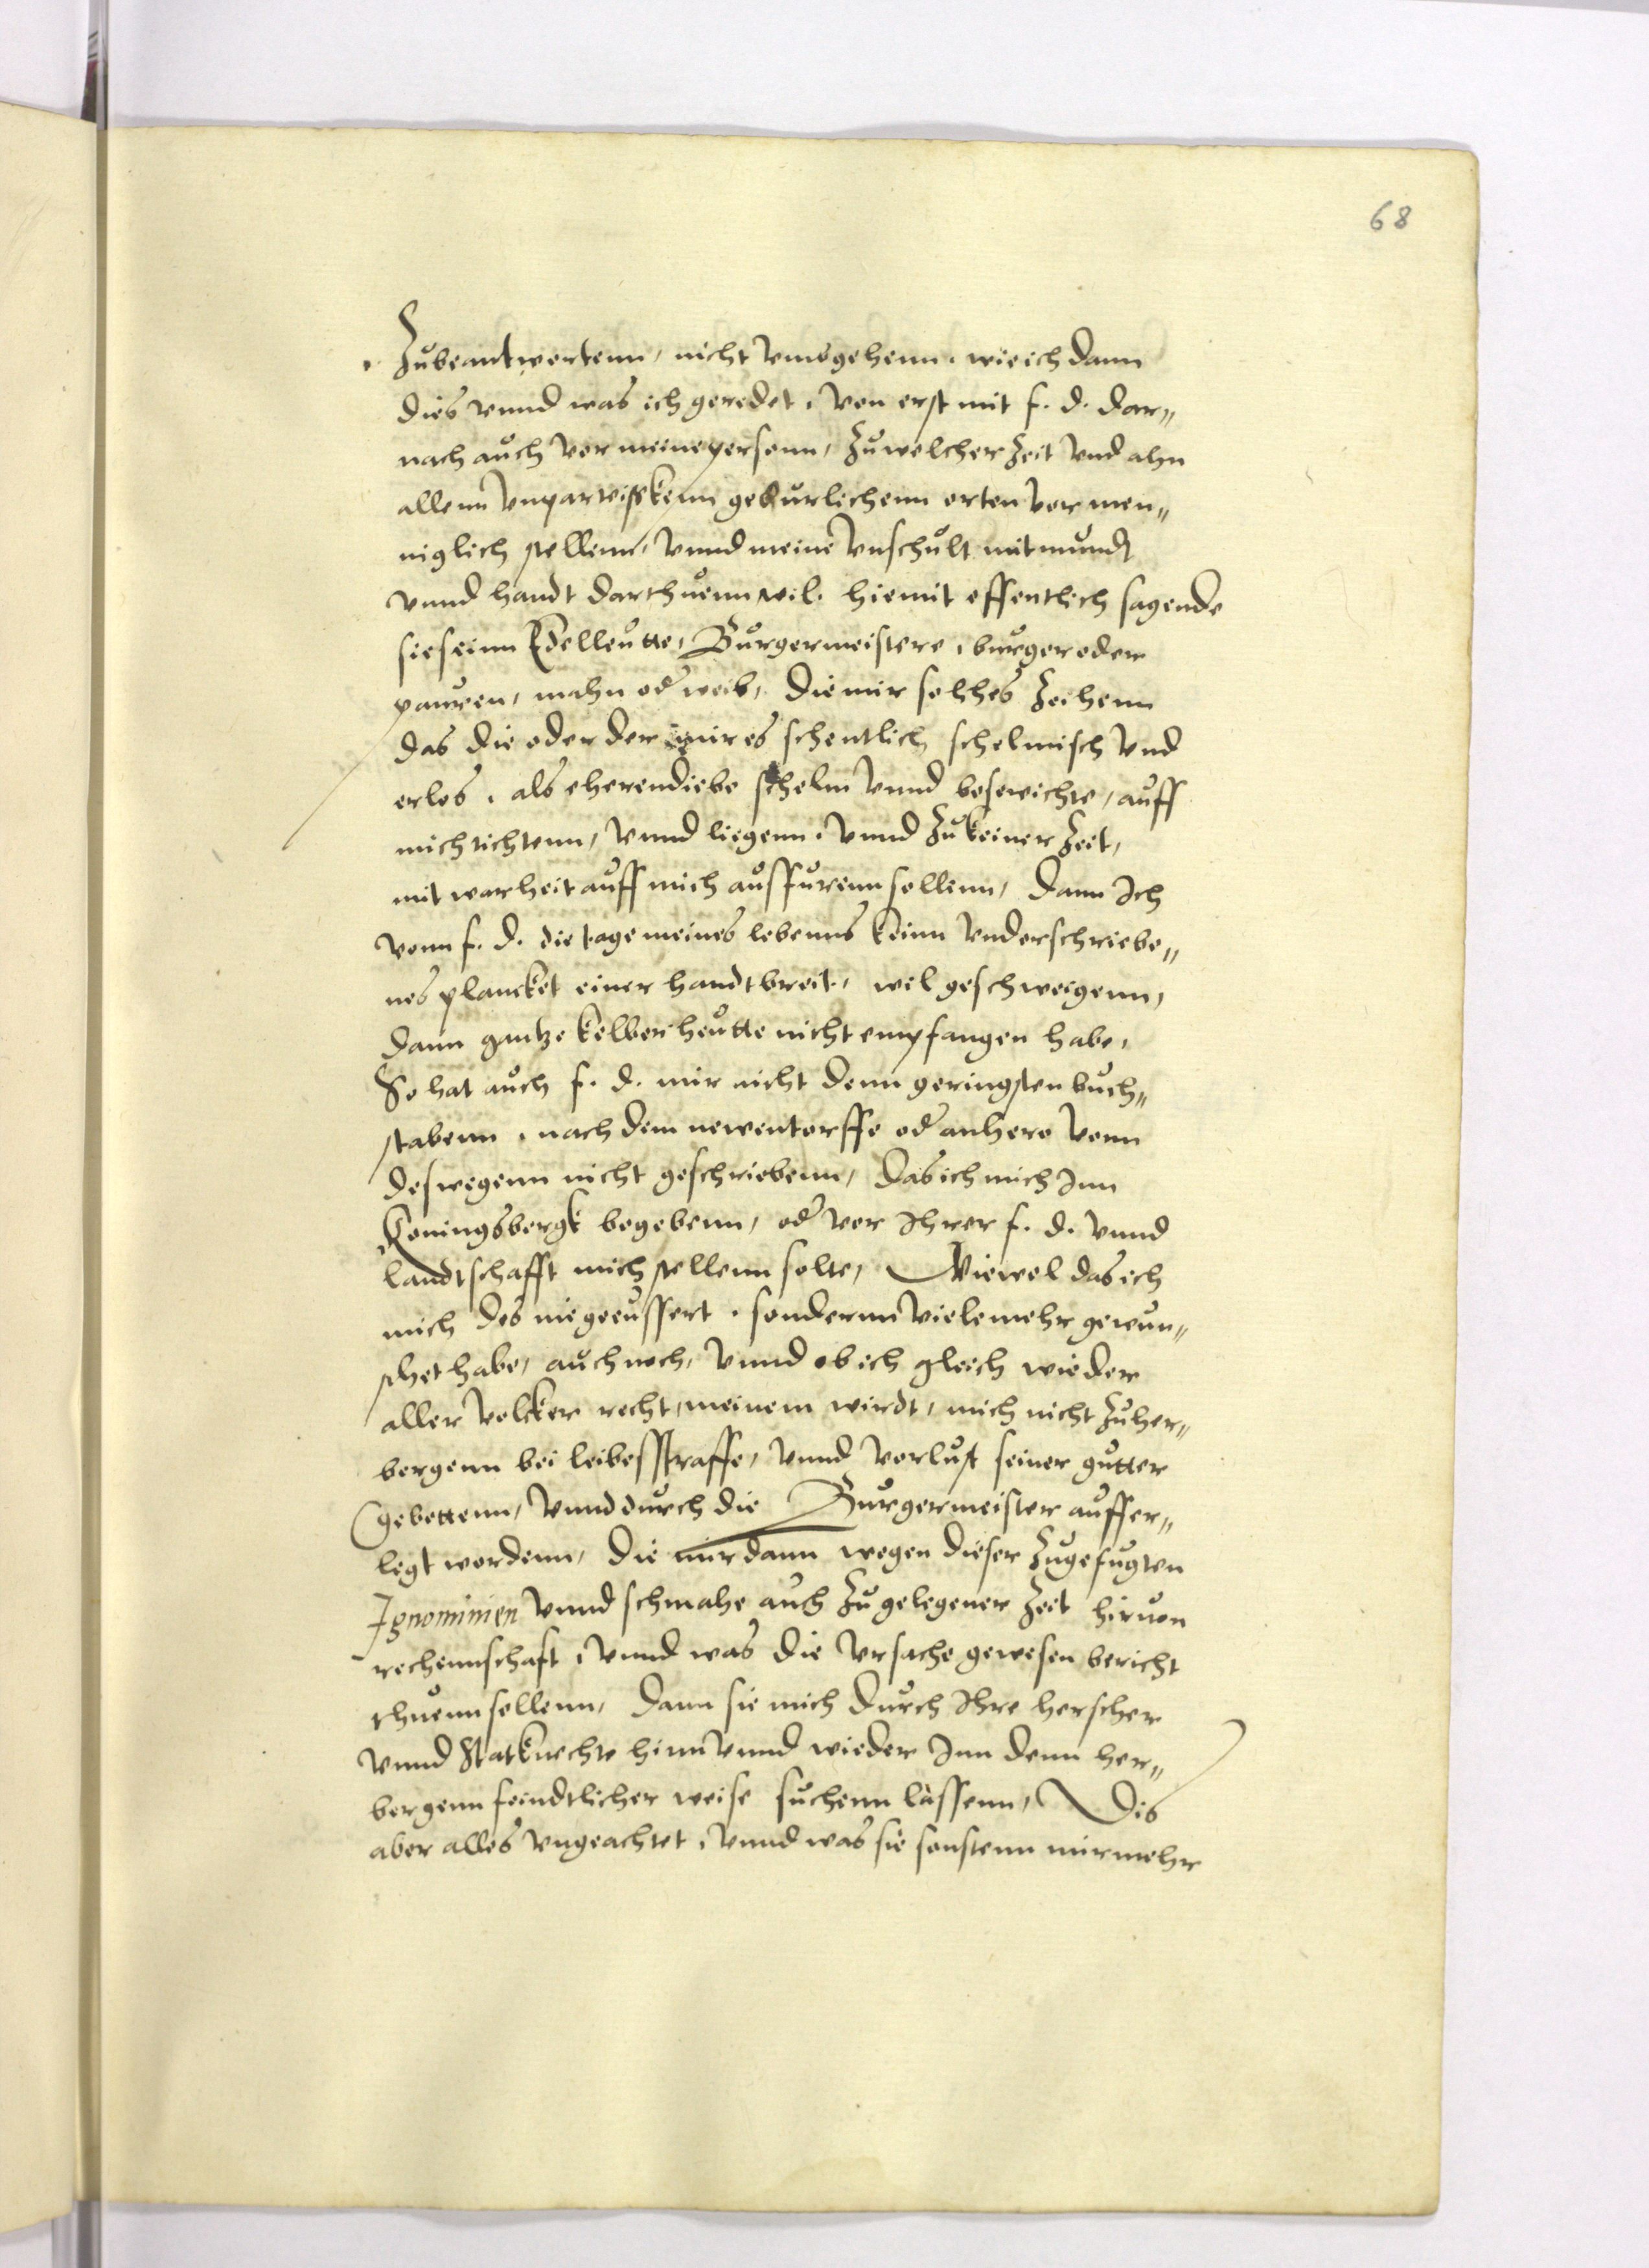 68
Zubeantwortenn, nicht vmbgehenn. wie ich dann
dies vnnd was ich geredet, von erst mit f. d. dar„
nach auch vor meine personn, zu welcher zeit vnd ahn
allenn vnparteischkenn geburlichenn orten vor men„
niglich stellenn, vnnd meine vnschult mit mundt
vnnd handt darthuenn wil. hiemit offentlich sagende
sie seinn Edelleutte, Burgermeistere, burger oder
pauren, mahn oder weib, die mir solches zeihenn
das die oder der mir es schentlich schelmisch vnd
erlos, als eherendiebe schelm vnnd bosewichte, auff
mich tichtenn, vnnd liegenn. vnnd zu keiner zeit,
mit warheit auff mich ausfurenn sollenn, dann Ich
vonn f. d. die tage meines lebenns keinn vnderschriebe„
nes plancket einer handtbreit, wil geschweigenn,
dann gantze kelber heutte nicht empfangen habe,
So hat auch f. d. mir nicht denn geringsten buch„
stabenn, nach dem newentorffe oder anhero vonn
deswegenn nicht geschriebenn, das ich mich Inn
Koningsbergk begebenn, oder vor Ihrer f. d. vnnd
landtschafft mich stellenn solte, Wiewol das ich
mich des nie geeussert. sondernn viele mehr gewun„
schet habe, auch noch, vnnd ob ich gleich wieder
aller volcker recht, meinem wirdt, mich nicht zuher„
bergenn bei leibesstraffe, vnnd vorlust seiner gutter
gebottenn, vnnd durch die Burgermeister aufferˮ
legt wordenn, die mir dann wegen dieser zugefugten
Ignominien vnnd schmahe auch zu gelegener zeit hiruon
rechennschaft, vnnd was die vrsache gewesen bericht
thuenn sollenn, dann sie mich durch Ihre herscher
vnnd Statknechte hinn vnnd wieder Inn denn her„
bergenn feindtlicher weise suchenn lassenn, Dis
aber alles vngeachtet, vnnd was sie sonstenn mir mehr